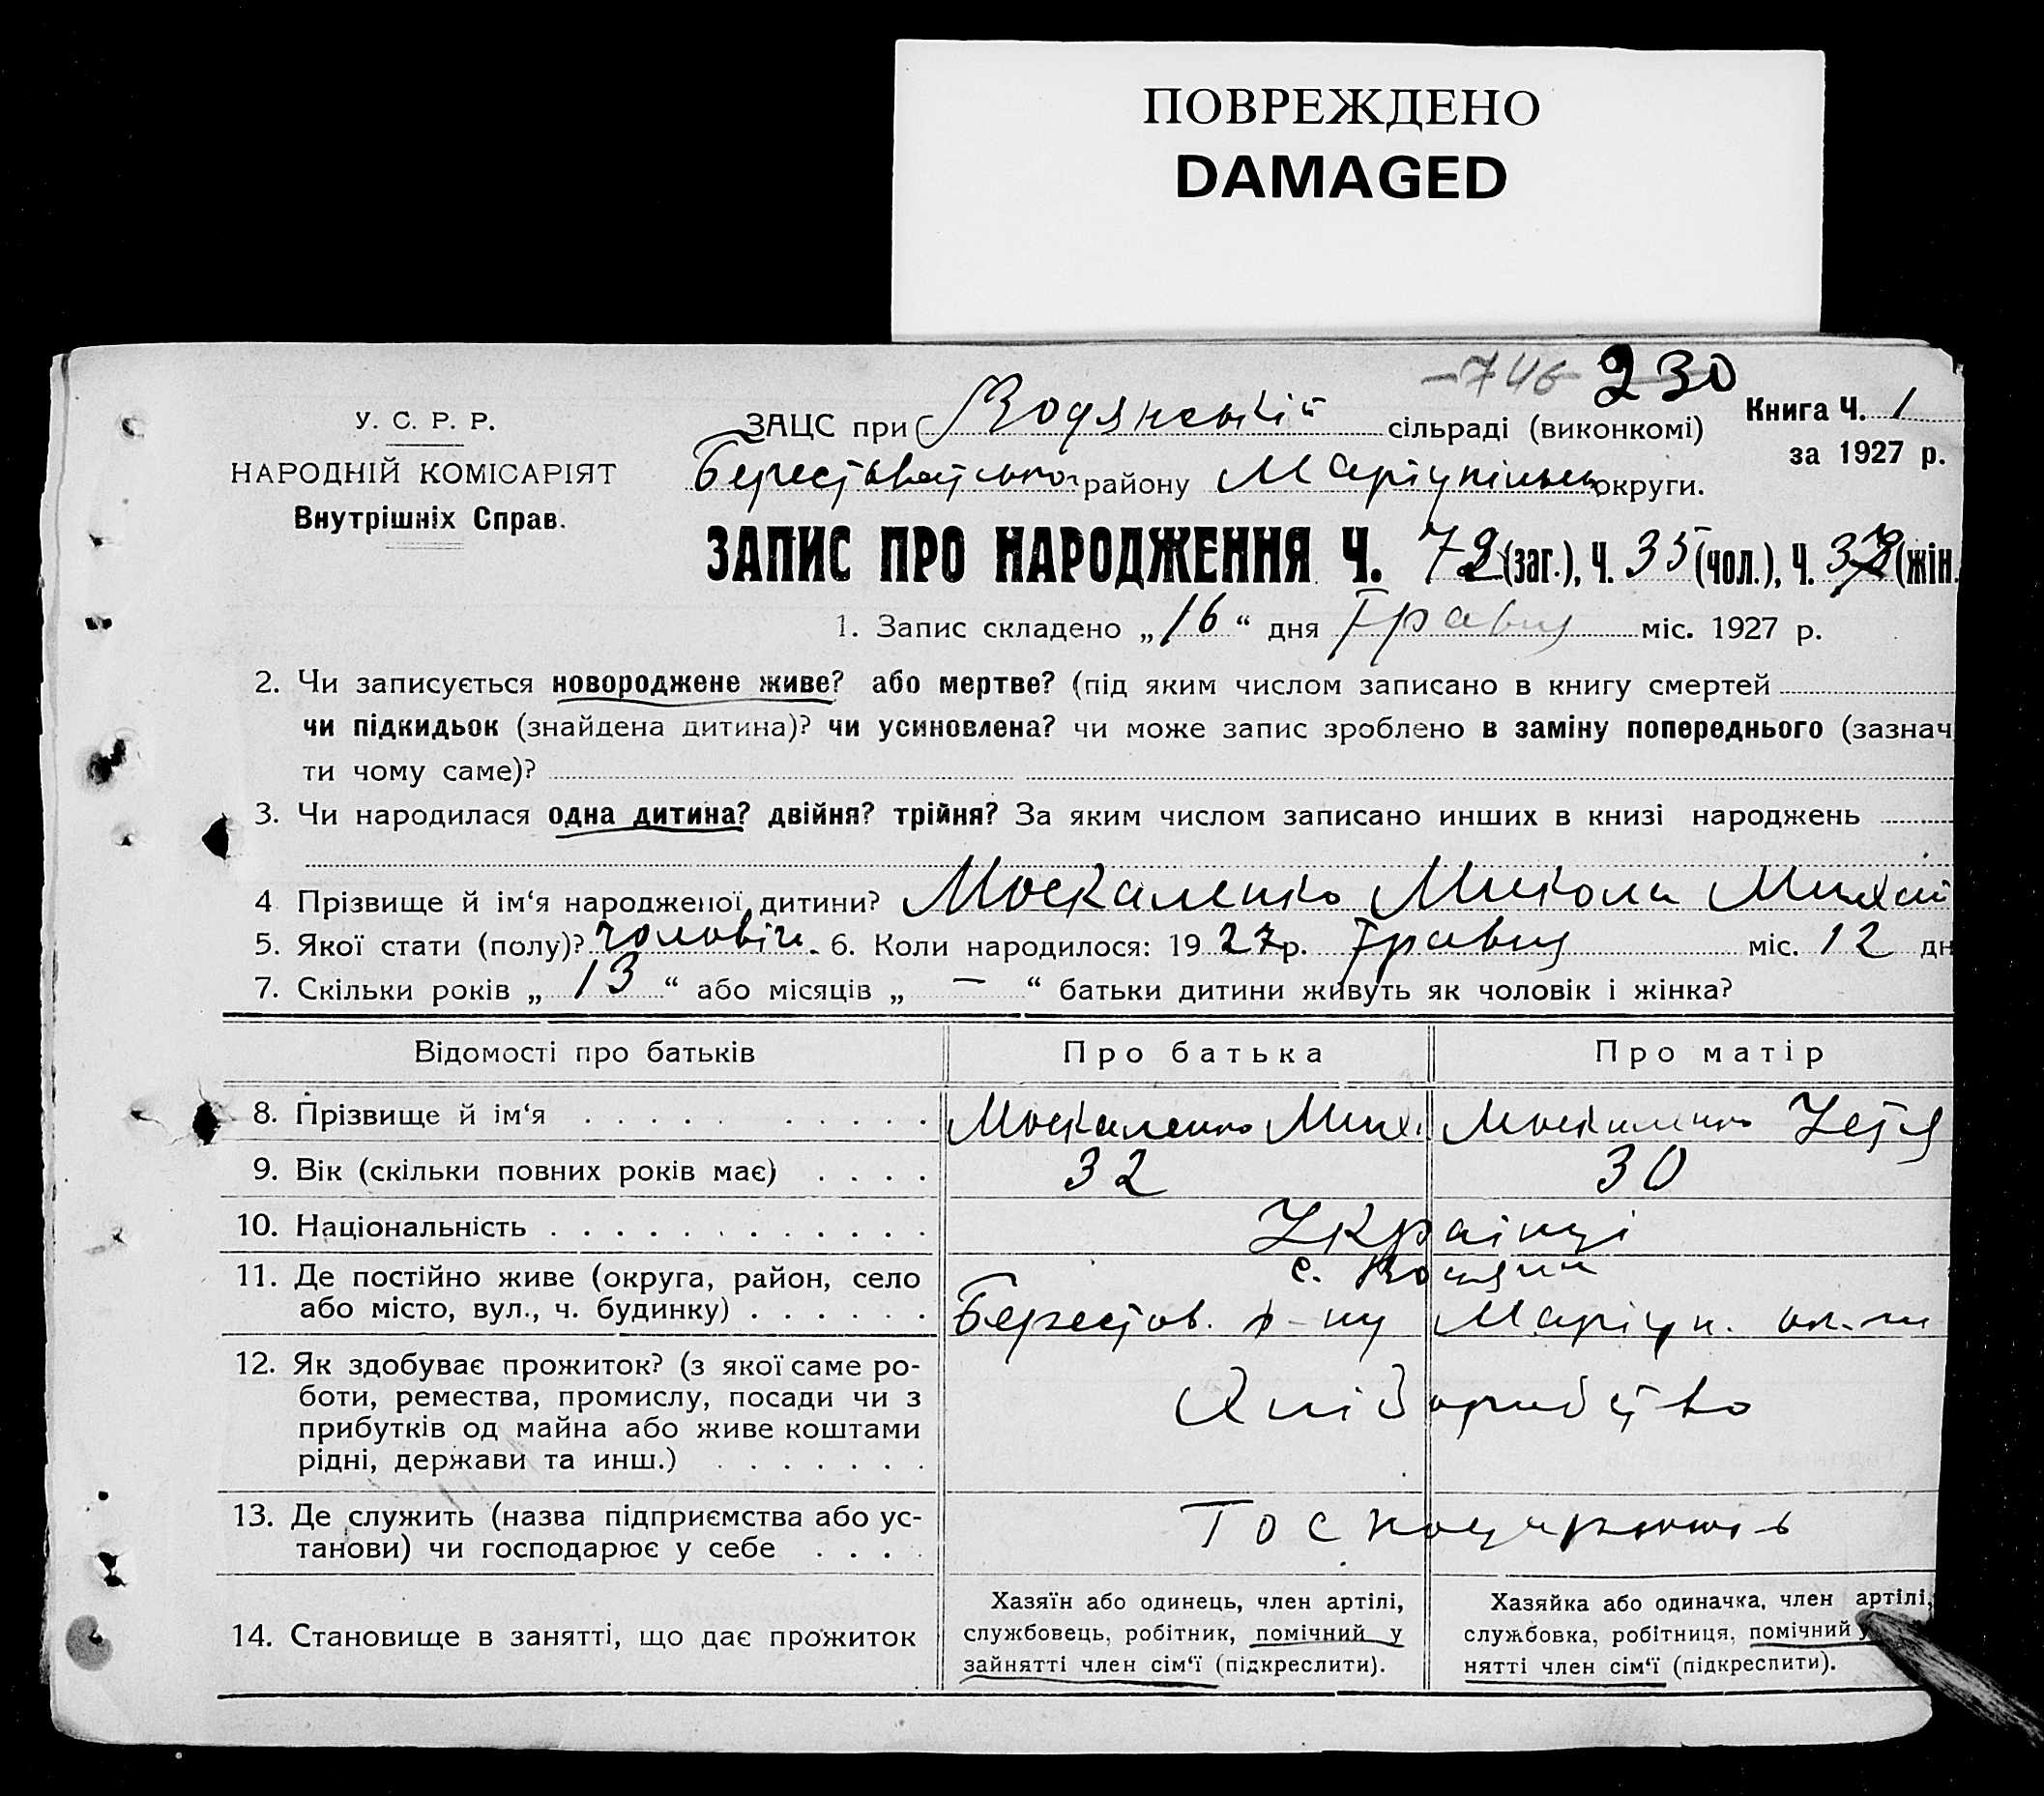 ПОВРЕЖДЕНО
DAMAGED
746 230
У. С. Р. Р.
НАРОДНІЙ КОМІСАРІЯТ
Внутрішніх Справ.
ЗАЦС при Водянській сільраді (виконкомі)
Книга Ч. 1
за 1927 р.
району Маріупільськ округи.
ЗАПИС ПРО НАРОДЖЕННЯ Ч. 72 (заг.), Ч. 35 (чол.), Ч. (жін.
1. Запис складено „16“ дня Травня міс. 1927 р.
2. Чи записується новороджене живе? або мертве? (під яким числом записано в книгу смертей
чи підкидьок (знайдена дитина)? чи усиновлена? чи може запис зроблено в заміну попереднього (зазнач
ти чому саме)?
3. Чи народилася одна дитина? двійня? трійня? За яким числом записано инших в книзі народжень
4 Прізвище й ім‘я народженої дитини? Москаленко Микола Михай
5. Якої стати (полу)? чоловіч. 6. Коли народилося: 1927 р. Травня міс. 12 дн
7. Скільки років „13“ або місяців „—“ батьки дитини живуть як чоловік і жінка?
Відомості про батьків Про батька Про матір
8. Прізвище й ім‘я Москаленко Мих. Москаленко
9. Вік (скільки повних років має) 32 30
10. Національність Українці
11. Де постійно живе (округа, район, село
або місто, вул., ч. будинку)
с. Водяни
Берестов. р-ну Маріуп. ок-ги
12. Як здобуває прожиток? (з якої саме ро-
боти, ремества, промислу, посади чи з
прибутків од майна або живе коштами
рідні, держави та инш.)
Хліборобство
13. Де служить (назва підприємства або ус-
танови) чи господарює у себе
14. Становище в занятті, що дає прожиток
Хазяїн або одинець, член артілі,
службовець, робітник, помічний у
зайнятті член сім‘ї (підкреслити).
Хазяйка або одиначка, член артілі,
службовка, робітниця, помічний у
нятті член сім‘ї (підкреслити).